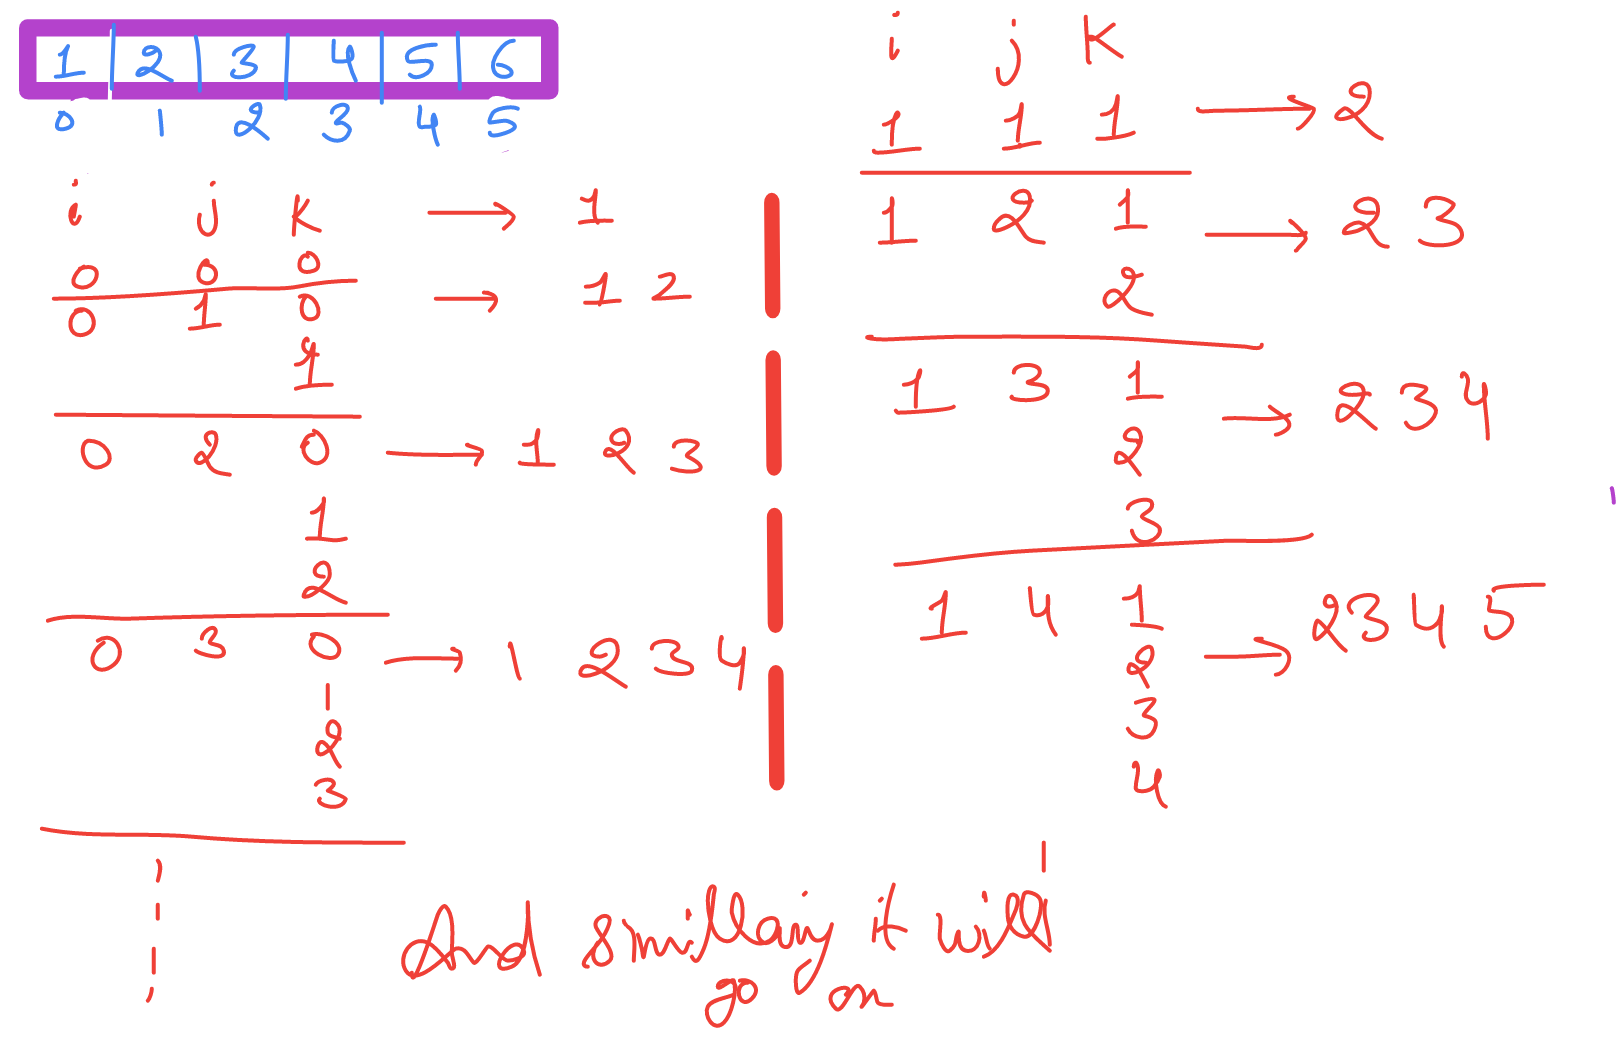 1 2 3 4 5 6
0 1 2 3 4 5
i j k → 1
0 0 0
0 1 0 → 1 2
1
0 2 0 → 1 2 3
1
2
0 3 0 → 1 2 3 4
1
2
3
i j K
1 1 1 → 2
1 2 1 → 2 3
2
1 3 1 → 2 3 4
2
3
1 4 1 → 2 3 4 5
2
3
4
And smillarly it will
go on